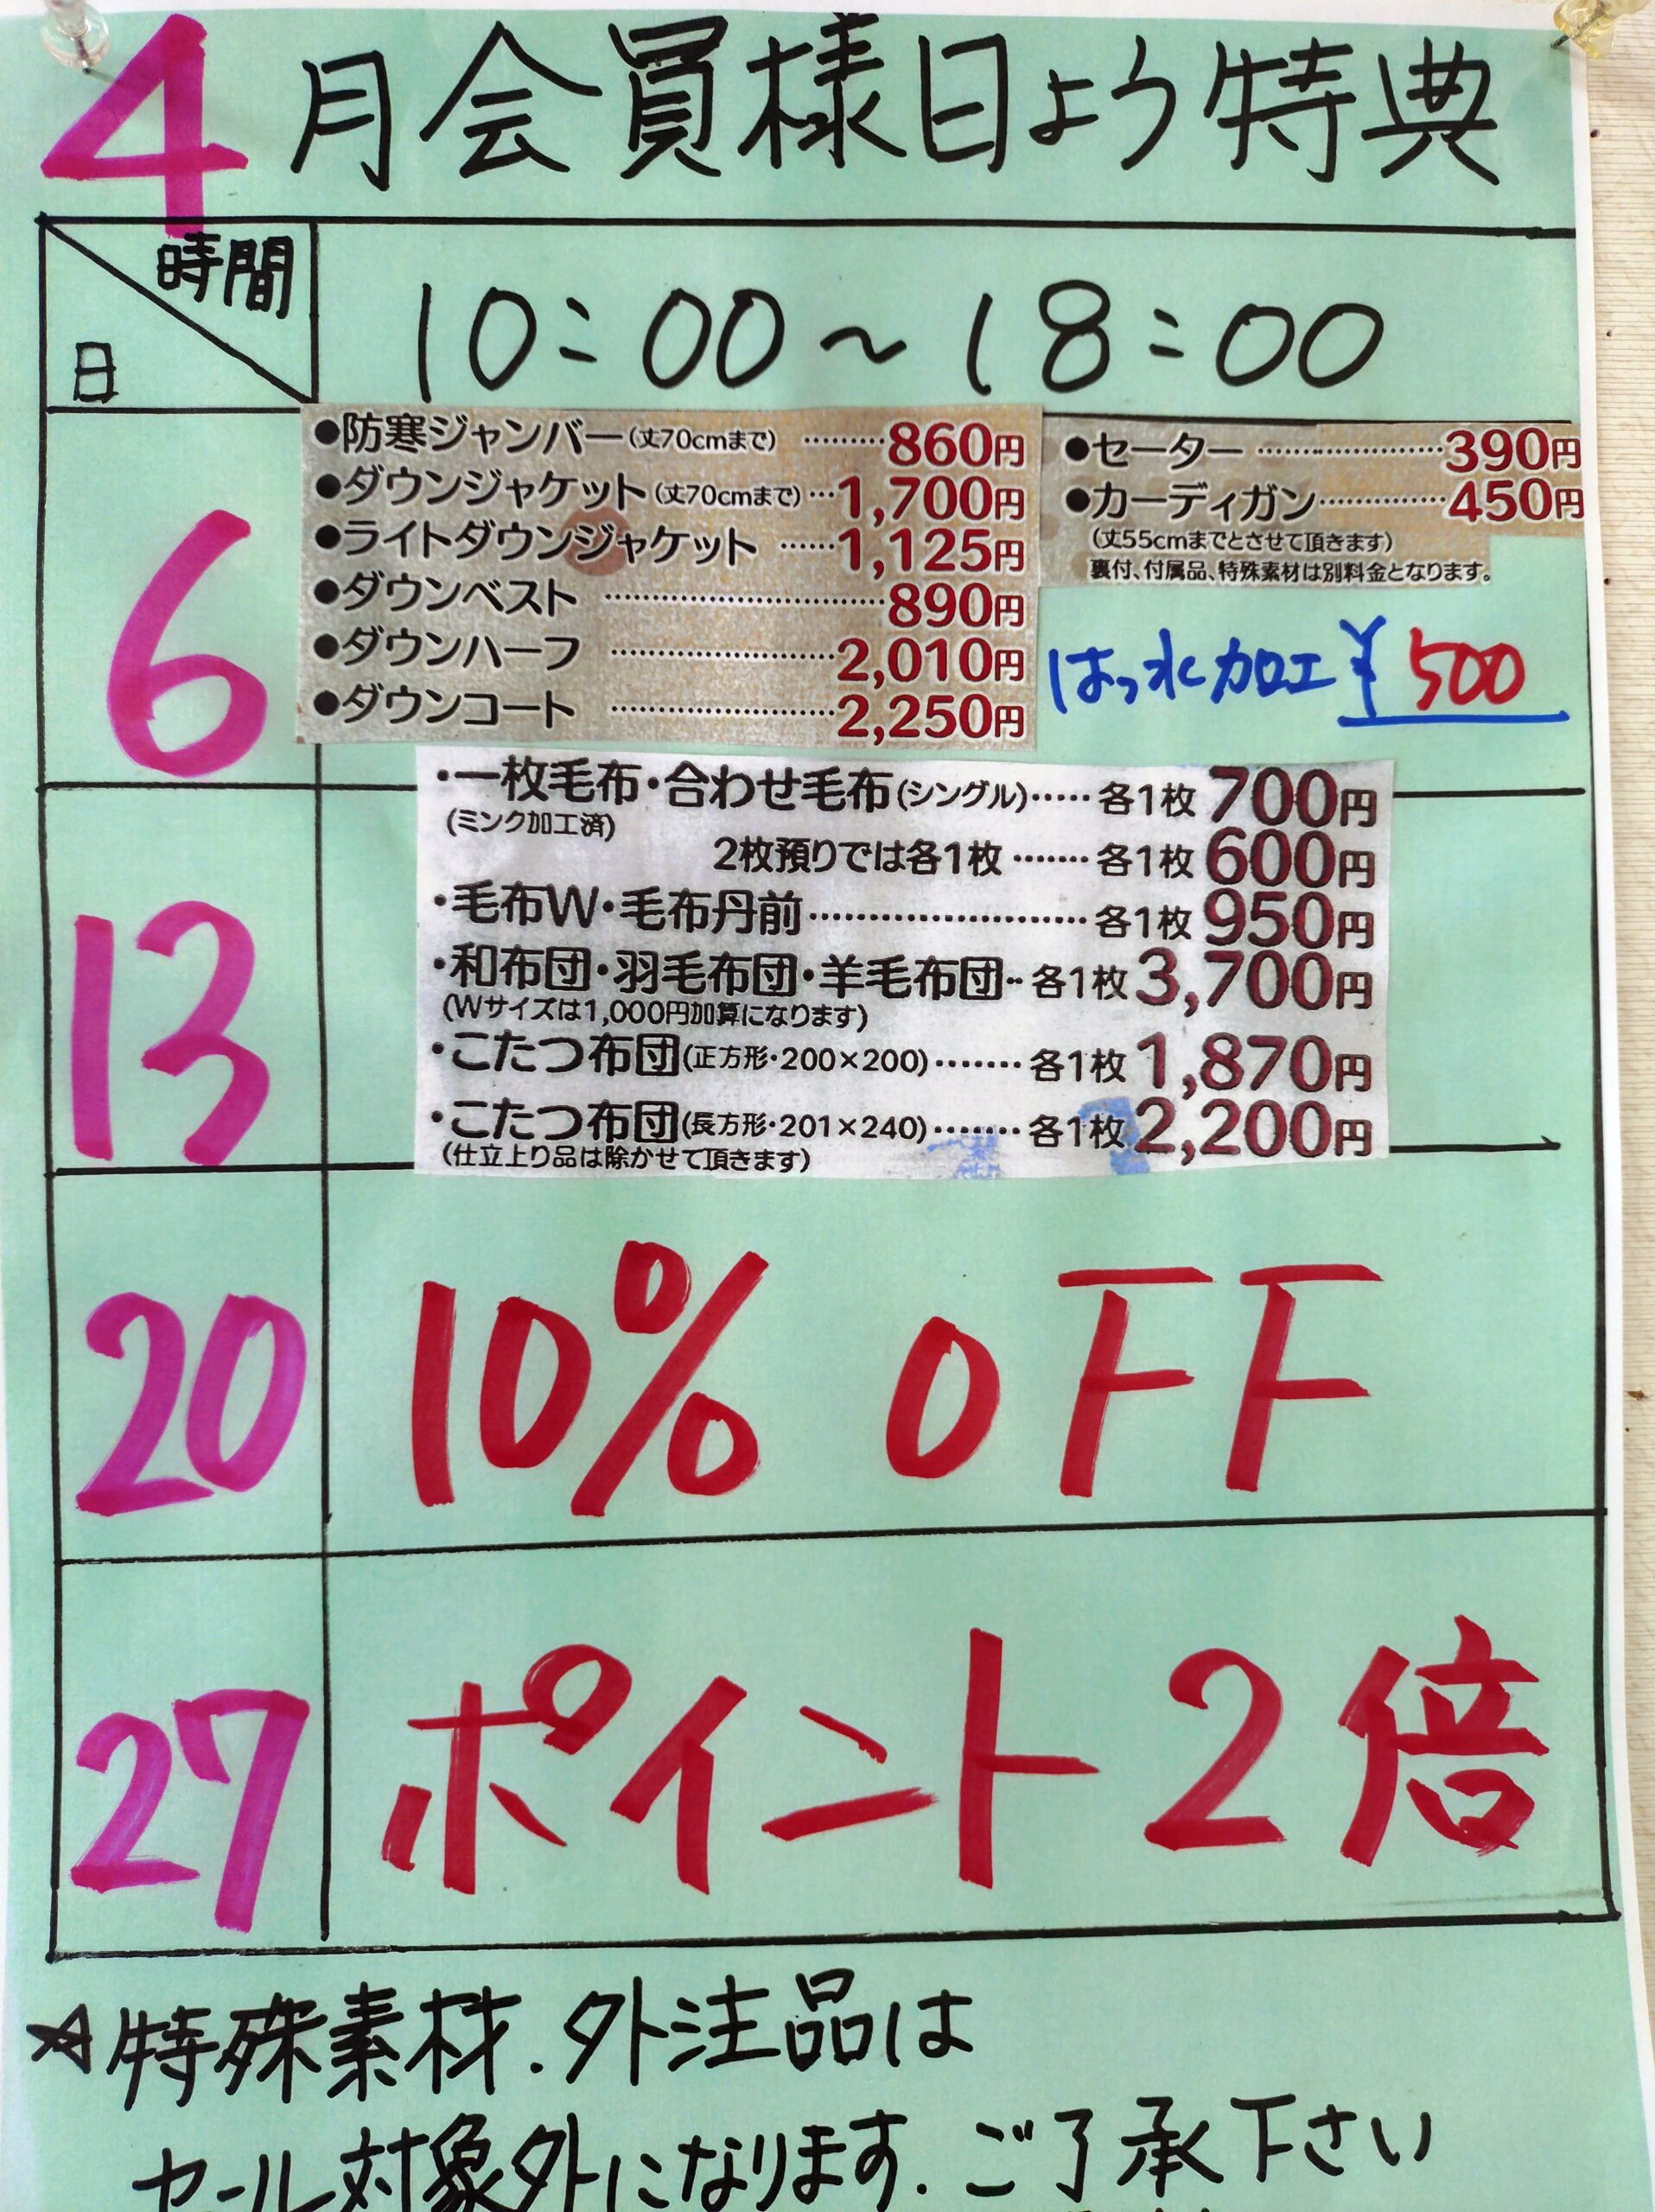 4月会員様日よう特典
時間
日
10:00~18:00
6
●防寒ジャンバー(丈70cmまで)………860円
●ダウンジャケット(丈70cmまで)…1,700円
●ライトダウンジャケット……1,125円
●ダウンベスト………………………890円
●ダウンハーフ…………………2,010円
●ダウンコート…………………2,250円
●セーター…………………390円
●カーディガン…………450円
(丈55cmまでとさせて頂きます)
裏付、付属品、特殊素材は別料金となります。
はっ水加工¥500
13
・一枚毛布・合わせ毛布(シングル)……各1枚700円
(ミンク加工済)
2枚預りでは各1枚……各1枚600円
・毛布W・毛布丹前………………………各1枚950円
・和布団・羽毛布団・羊毛布団…各1枚3,700円
(Wサイズは1,000円加算になります)
・こたつ布団(正方形・200×200)……各1枚1,870円
・こたつ布団(長方形・201×240)……各1枚2,200円
(仕立上り品は除かせて頂きます)
20
10% OFF
27
ポイント2倍
☆特殊素材.外注品は
セール対象外になります.ご了承下さい